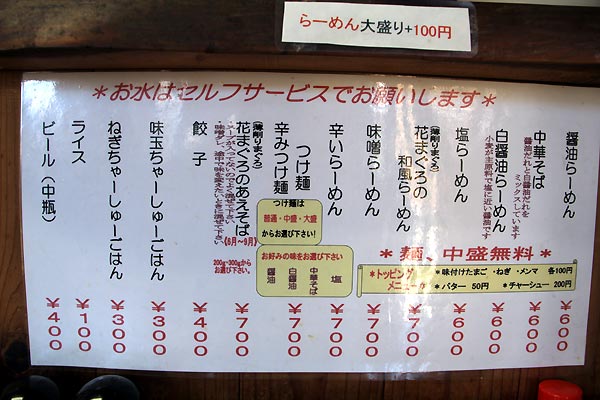 らーめん大盛り+100円
＊お水はセルフサービスでお願いします＊
醤油らーめん
￥600
中華そば
醤油だれと白醤油だれを
ミックスしています
￥600
白醤油らーめん
小麦が主原料で塩に近い醤油です
￥600
塩らーめん
￥600
(薄削りまぐろ)
花まぐろの
和風らーめん
￥700
味噌らーめん
￥700
辛いらーめん
￥700
つけ麺
辛みつけ麺
￥700
つけ麺は
普通・中盛・大盛
からお選び下さい!
お好みの味をお選び下さい!
塩
中華そば
白醤油
醤油
(薄削りまぐろ)
花まぐろのあえそば
《6月～9月》
200g・300gから
お選び下さい。
￥700
餃子
￥400
味玉ちゃーしゅーごはん
￥300
ねぎちゃーしゅーごはん
￥300
ライス
￥100
ビール(中瓶)
￥400
＊麺、中盛無料＊
＊トッピング
メニュー＊
＊味付けたまご・ねぎ・メンマ 各100円
＊バター 50円 ＊チャーシュー 200円